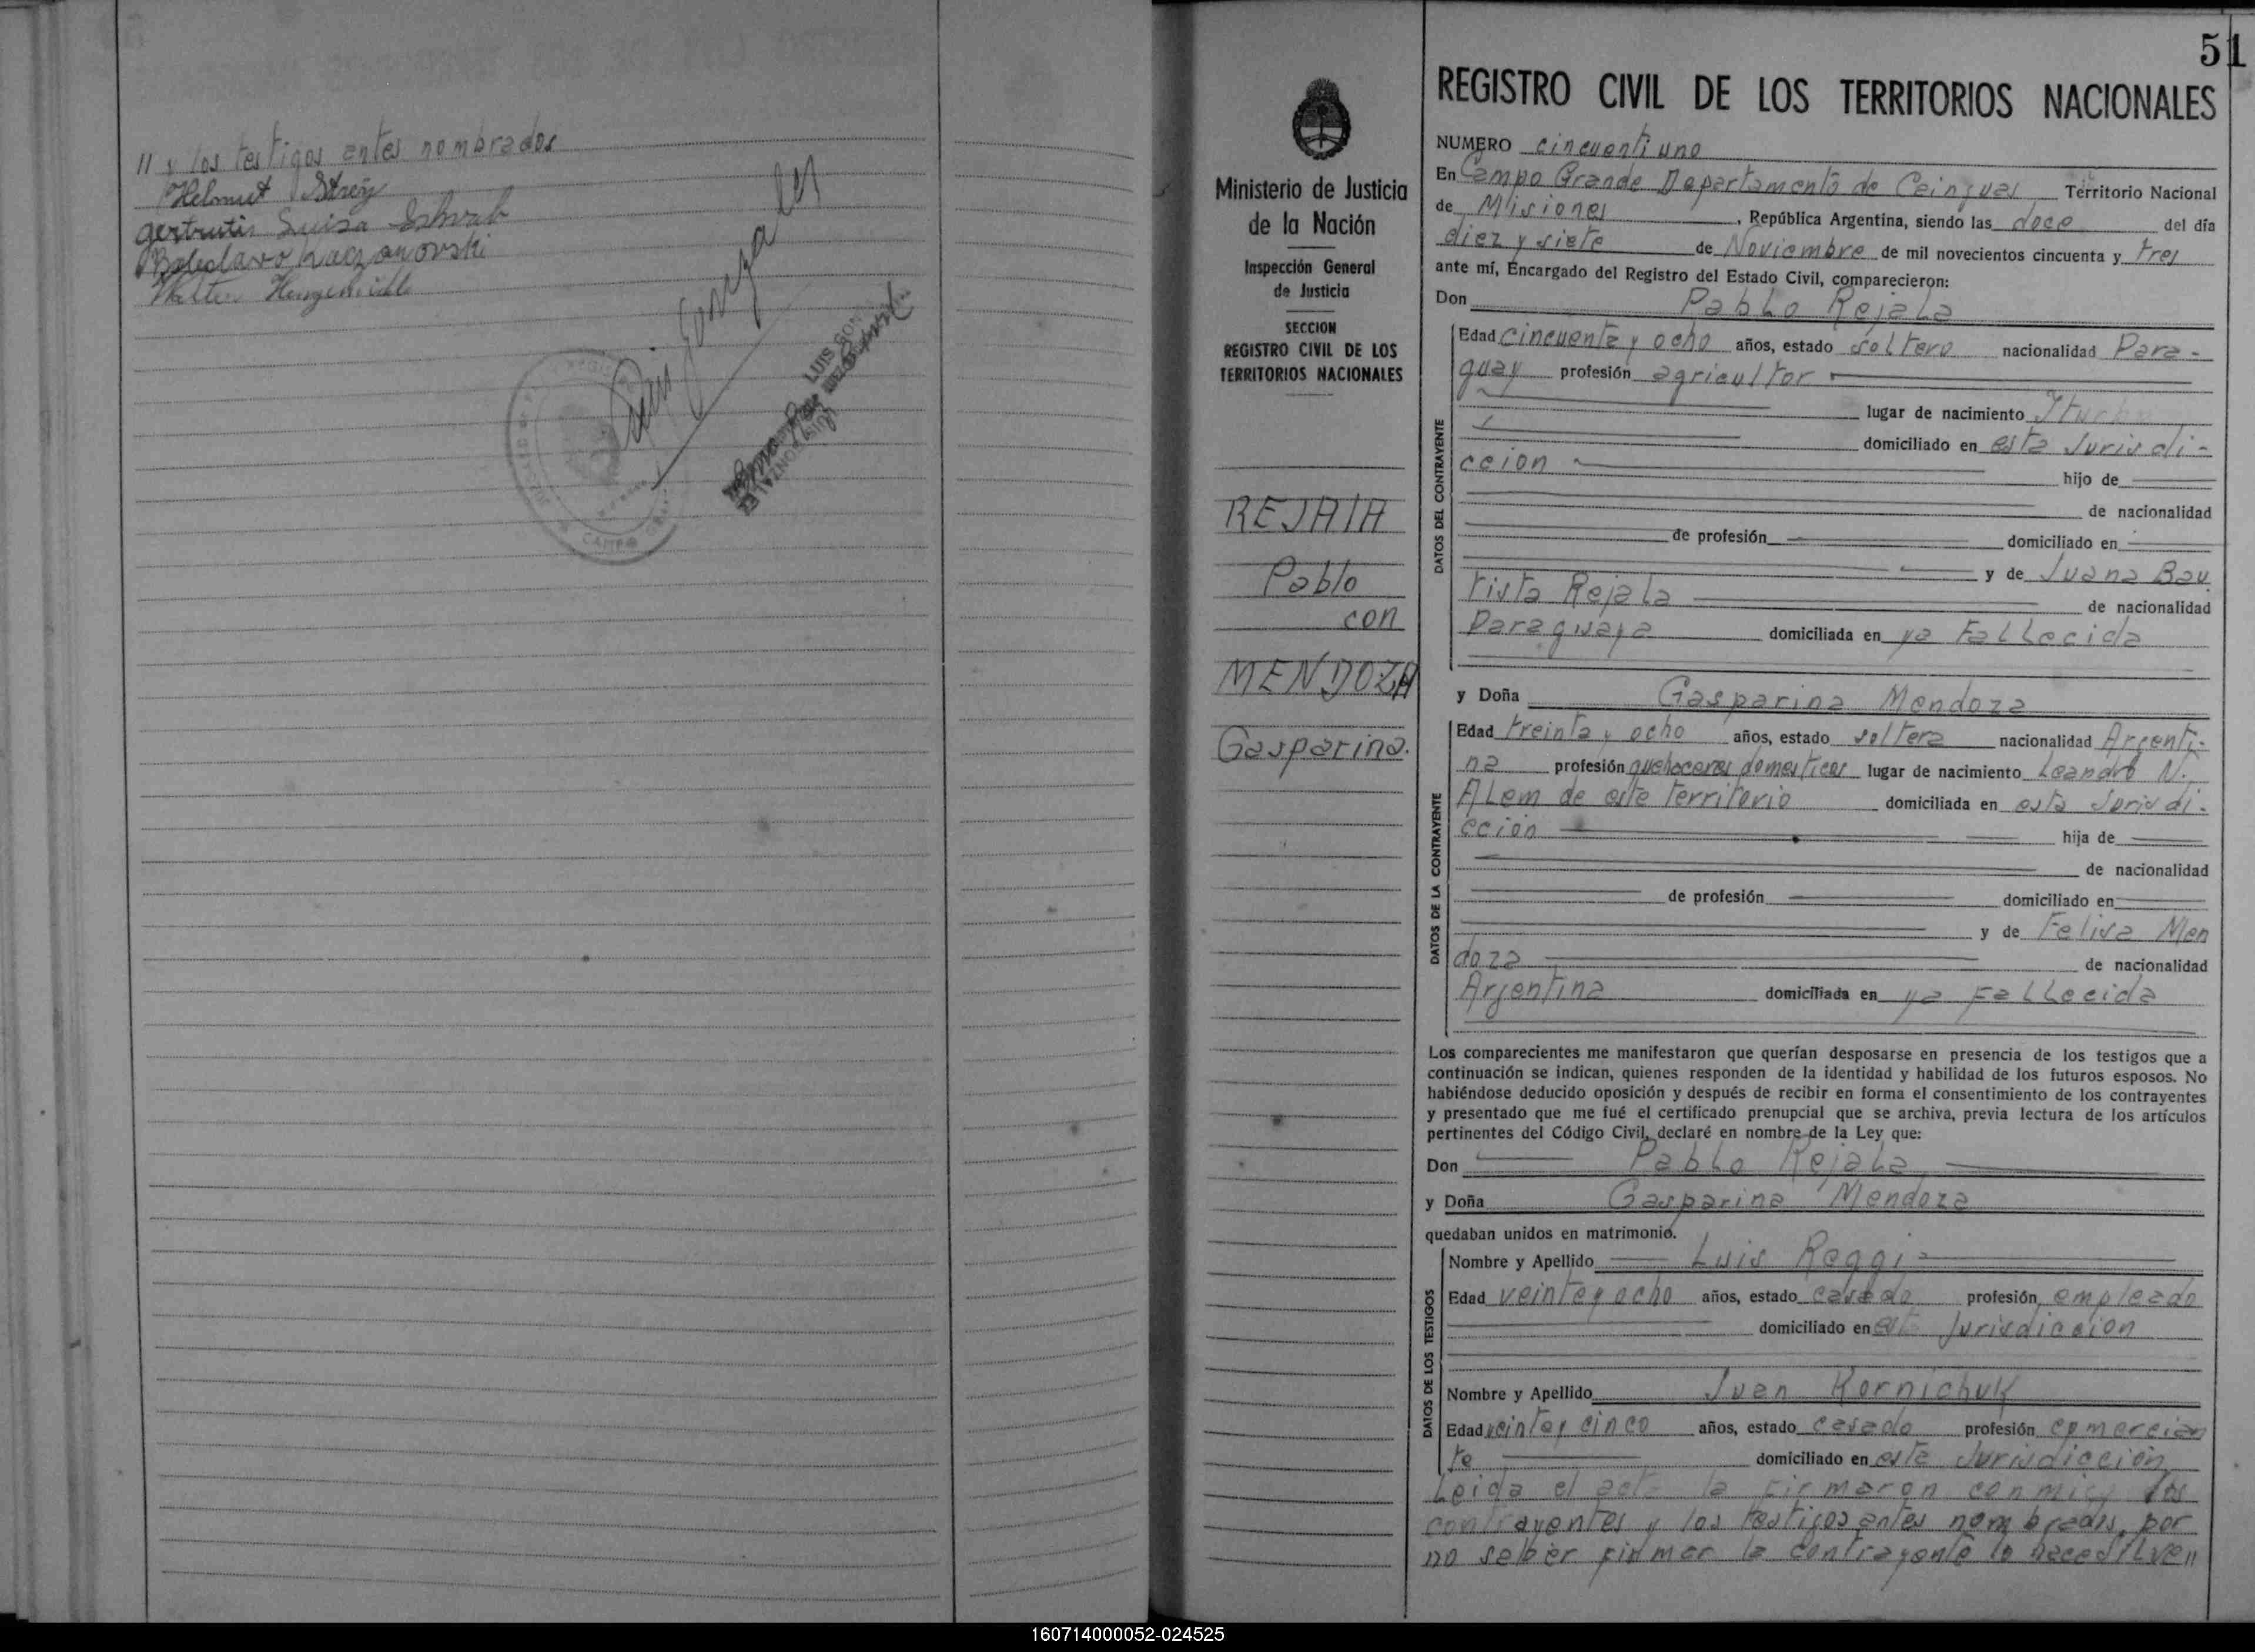 // y los testigos antes nombrados
Helmut Strey
gertrutis Luisa
Boleslavo
Walter
Luis Gonzalez
CAMPO
LUIS GON
LUIS GONZALEZ
51
REGISTRO CIVIL DE LOS TERRITORIOS NACIONALES
Ministerio de Justicia
de la Nación
Inspección General
de Justicia
SECCION
REGISTRO CIVIL DE LOS
TERRITORIOS NACIONALES
REJAlA
Pablo
con
MENDOZA
Gasparina.
NUMERO cincuentiuno
En Campo Grande Departamento de Cainguas Territorio Nacional
de Misiones, República Argentina, siendo las doce del día
diez y siete de Noviembre de mil novecientos cincuenta y tres
ante mí, Encargado del Registro del Estado Civil, comparecieron:
Don Pablo Rejala
DATOS DEL CONTRAYENTE
Edad cincuenta y ocho años, estado soltero nacionalidad Para-
guay profesión agricultor
lugar de nacimiento
domiciliado en esta Jurisdi-
ccion hijo de
de nacionalidad
de profesión domiciliado en
y de Juana Bau
tista Rejala de nacionalidad
Paraguaya domiciliada en ya Fallecida
y Doña Gasparina Mendoza
DATOS DE LA CONTRAYENTE
Edad treinta y ocho años, estado soltera nacionalidad Argenti-
na profesión quehaceres domesticos lugar de nacimiento Leandro N.
Alem de este territorio domiciliada en esta Jurisdi-
ccion hija de
de nacionalidad
de profesión domiciliado en
y de Felisa Men
doza de nacionalidad
Argentina domiciliada en ya Fallecida
Los comparecientes me manifestaron que querían desposarse en presencia de los testigos que a
continuación se indican, quienes responden de la identidad y habilidad de los futuros esposos. No
habiéndose deducido oposición y después de recibir en forma el consentimiento de los contrayentes
y presentado que me fué el certificado prenupcial que se archiva, previa lectura de los artículos
pertinentes del Código Civil, declaré en nombre de la Ley que:
Don Pablo Rejala
y Doña Gasparina Mendoza
quedaban unidos en matrimonio.
DATOS DE LOS TESTIGOS
Nombre y Apellido Luis Reggi
Edad veinte y ocho años, estado casado profesión empleado
domiciliado en Jurisdiccion
Nombre y Apellido Juan Kornichuk
Edad veinte y cinco años, estado casado profesión comercian
te domiciliado en esta Jurisdicción
Leida el acta la firmaron conmigo los
contrayentes y los testigos antes nombrados, por
no saber firmar la contrayente lo hace
160714000052-024525